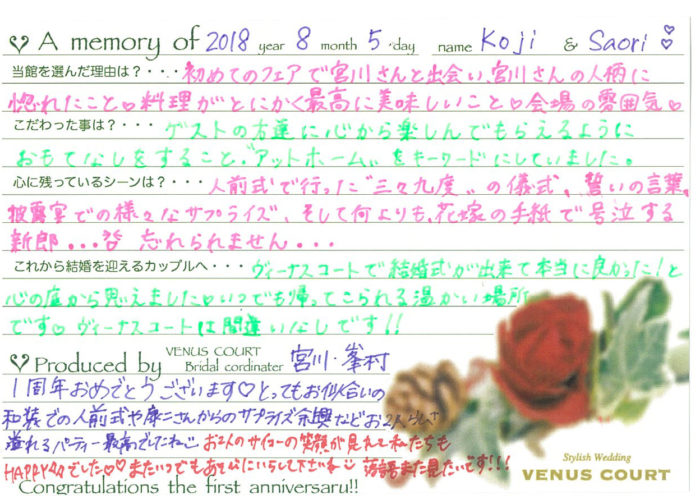 A memory of 2018 year 8 month 5 day name Koji & Saori
当館を選んだ理由は?・・・初めてのフェアで宮川さんと出会い、宮川さんの人柄に
惚れたこと♡料理がとにかく最高に美味しいこと♡会場の雰囲気♡
こだわった事は?・・・ゲストの方達に心から楽しんでもらえるように
おもてなしをすること。"アットホーム"をキーワードにしていました。
心に残っているシーンは?・・・人前式で行った"三々九度"の儀式、誓いの言葉、
披露宴での様々なサプライズ、そして何よりも、花嫁の手紙で号泣する
新郎...忘れられません...
これから結婚を迎えるカップルへ・・・ヴィーナスコートで結婚式が出来て本当に良かった!と
心の底から思えました♡いつでも帰ってこられる温かい場所
です♡ヴィーナスコートは間違いなしです!!
Produced by VENUS COURT Bridal cordinater 宮川・峯村
1周年おめでとうございます♡とってもお似合いの
和装での人前式や 二さんからのサプライズ余興などお2人らしさ
溢れるパーティー最高でしたね お2人のサイコーの笑顔が見れて私たちも
HAPPYでした♡♡またいつでもあそびにいらして下さいね 落語もまた見たいです!!!
Congratulations the first anniversaru!!
Stylish Wedding
VENUS COURT